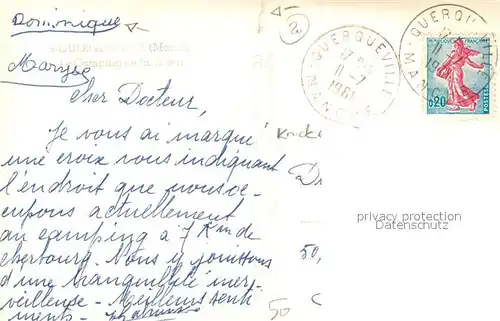 Dominique
Maryse
Cher Docteur,
Je vous ai marqué
une croix vous indiquant
l'endroit que nous oc-
cupons actuellement
au camping à 7 Km de
cherbourg. Nous y jouissons
d'une tranquillité mer-
veilleuse - Meilleurs senti
ments -
QUERQUEVILLE
17 H
11-7
1961
MANCHE
QUERQUEVILLE
1961
MANCHE
FRANÇAISE
0,20
POSTES
Knick
D
50,
50
C
privacy protection
Datenschutz